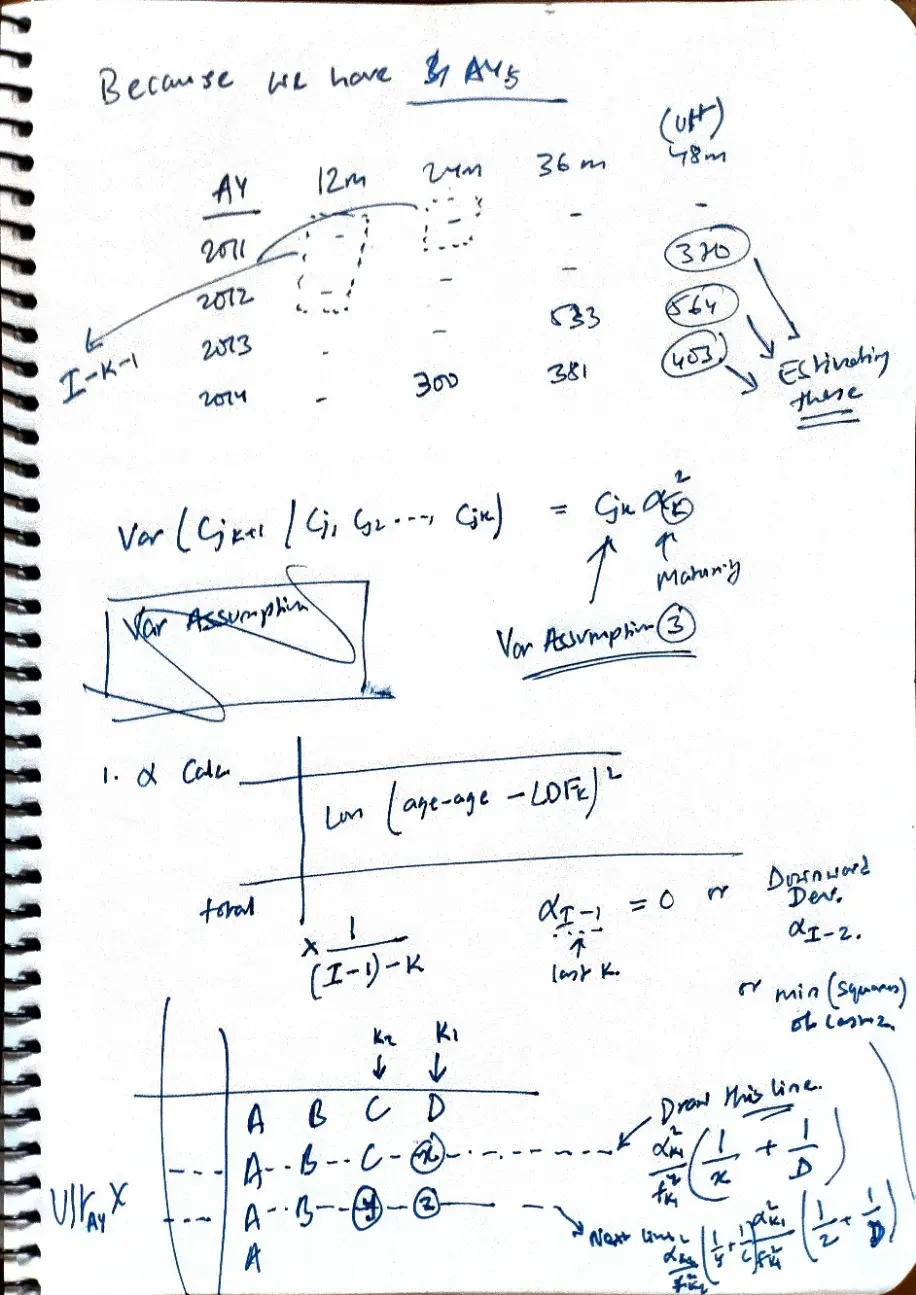 Because we have 3 AYs
(Ult)
AY 12m 24m 36m 48m
2011 - - - -
2012 - - - 370
2013 - - 533 564
2014 - 300 381 403
I-K-1
Estimating
these
Var (Cjk+1 / Cj1 Cj2 ..., Cjk) = Cjk αk²
Maturity
Var Assumption
Var Assumption 3
1. α Calc
Loss (age-age - LDFk)²
total
× 1/(I-1)-K
αI-1 = 0 or Downward
Dev.
αI-2.
last K.
or min (squares)
of last 2.
K2 K1
A B C D
Draw this line.
A B C x
αK1²/fK1² (1/x + 1/D)
Ult AY X
A B y z
Next line: αK2²/fK2² (1/y + 1/C) αK1²/fK1² (1/z + 1/D)
A